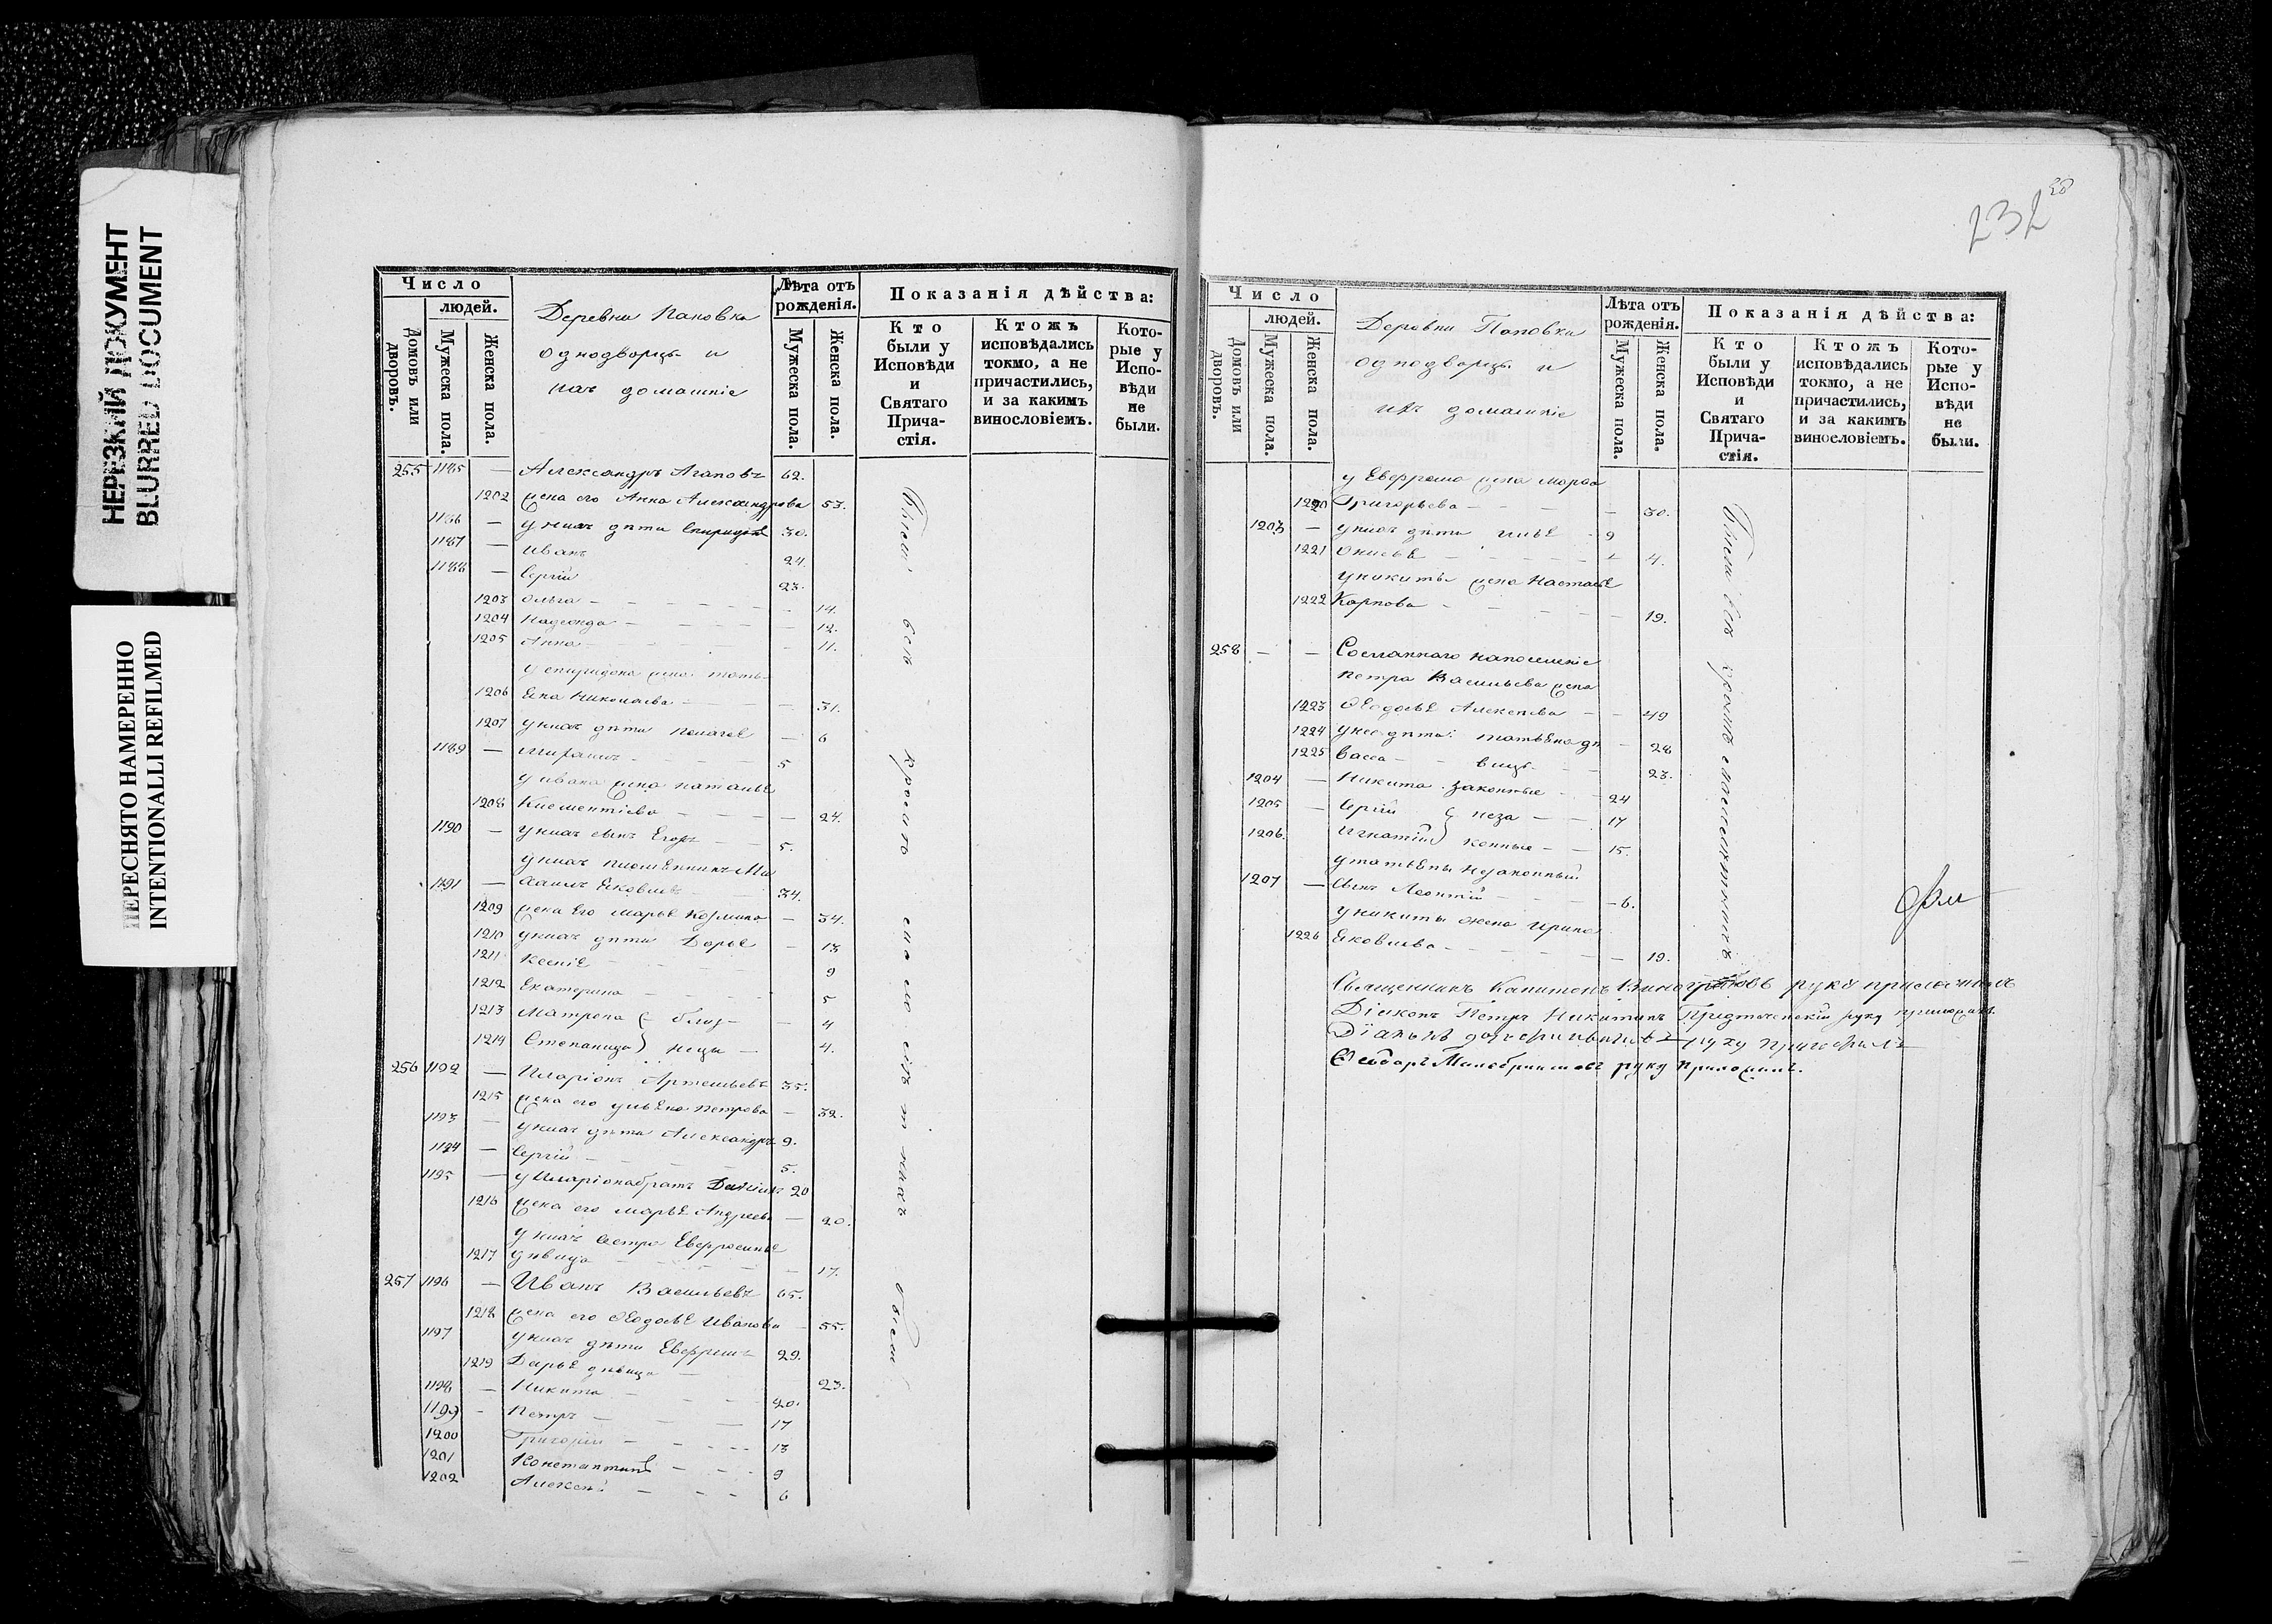 НЕРЕЗКИЙ ДОКУМЕНТ
BLURRED DOCUMENT
ПЕРЕСНЯТО НАМЕРЕННО
INTENTIONALLI REFILMED
Число
людей.
Домовъ или дворовъ.
Мужеска пола.
Женска пола.
Деревни Паповки
однодворцы и
ихъ домашніе
Лѣта отъ рожденія.
Мужеска пола.
Женска пола.
Показанія дѣйства:
Кто были у Исповѣди и Святаго Прича-стія.
Ктожъ исповѣдались токмо, а не причастились, и за какимъ винословіемъ.
Кото-рые у Испо-вѣди не были.
255 1185 — Александръ Агаповъ 62.
1202 жена его Анна Александрова 53.
1186 — у нихъ дѣти 30.
1187 — Иванъ 24.
1188 — Сергій 23.
1203 Ольга — 14.
1204 Надежда — 12.
1205 Анна — 11.
у Спиридона жена Тать-
1206 яна Николаева — 31.
1207 у нихъ дѣти Пелагея — 6
1189 — 5
у Ивана жена Наталья
1208 Клементіева — 24.
1190 — у нихъ сынъ Егоръ — 5.
у нихъ племянникъ Ми
1191 — хаилъ Яковлевъ 34.
1209 жена его Марья Козмина — 34.
1210 у нихъ дѣти Дарья — 13
1211 Ксенія 9
1212 Екатерина 5
1213 Матрена близ- — 4
1214 Степанида нецы — 4.
256 1192 — Иларіонъ Артемьевъ 35.
1215 жена его Ульяна Петрова — 32.
1193 — у нихъ дѣти Александръ 9.
1194 — Сергій — 5.
1195 — у Иларіона братъ 20
1216 жена его Марья Андреева — 20.
у нихъ сестра Евфросинья
1217 дѣвица — 17.
257 1196 — Иванъ Васильевъ 65.
1218 жена его Ѳеодосья Иванова 55.
1197 у нихъ дѣти Евфремъ 29.
1219 Дарья дѣвица 23.
1198 — Никита — 20.
1199 — Петръ — 17
1200 Григорій — 13
1201 Константинъ — 9
1202 Алексѣй — 6
Были всѣ кромѣ
232
Число
людей.
Домовъ или дворовъ.
Мужеска пола.
Женска пола.
Деревни Паповки
однодворцы и
ихъ домашніе
Лѣта отъ рожденія.
Мужеска пола.
Женска пола.
Показанія дѣйства:
Кто были у Исповѣди и Святаго Прича-стія.
Ктожъ исповѣдались токмо, а не причастились, и за какимъ винословіемъ.
Кото-рые у Испо-вѣди не были.
у Евфрема жена Марѳа
1220 Григорьева — 30.
1203 — у нихъ дѣти Илья 9
1221 Анисья — 4.
у Никиты жена Настасья
1222 Карпова — 19.
258 — — Сосланнаго на поселеніе
Петра Васильева жена
1223 Ѳеодосья Алексѣева — 49
1224 у нее дѣти: Татьяна дѣ — 28
1225 Васса — вицы 23.
1204 — Никита законные — 24
1205 — Сергій неза — 17
1206. Игнатій конные — 15.
у Татьяны незаконный
1207 — сынъ Леонтій — 6.
у Никиты жена Ирина
1226 Яковлева — 19.
Были всѣ кромѣ малолѣтнихъ
Священникъ Капитонъ руку приложилъ
Діаконъ Петръ Никитинъ Предтеченскій руку приложилъ.
руку приложилъ
Ѳеодоръ руку приложилъ.